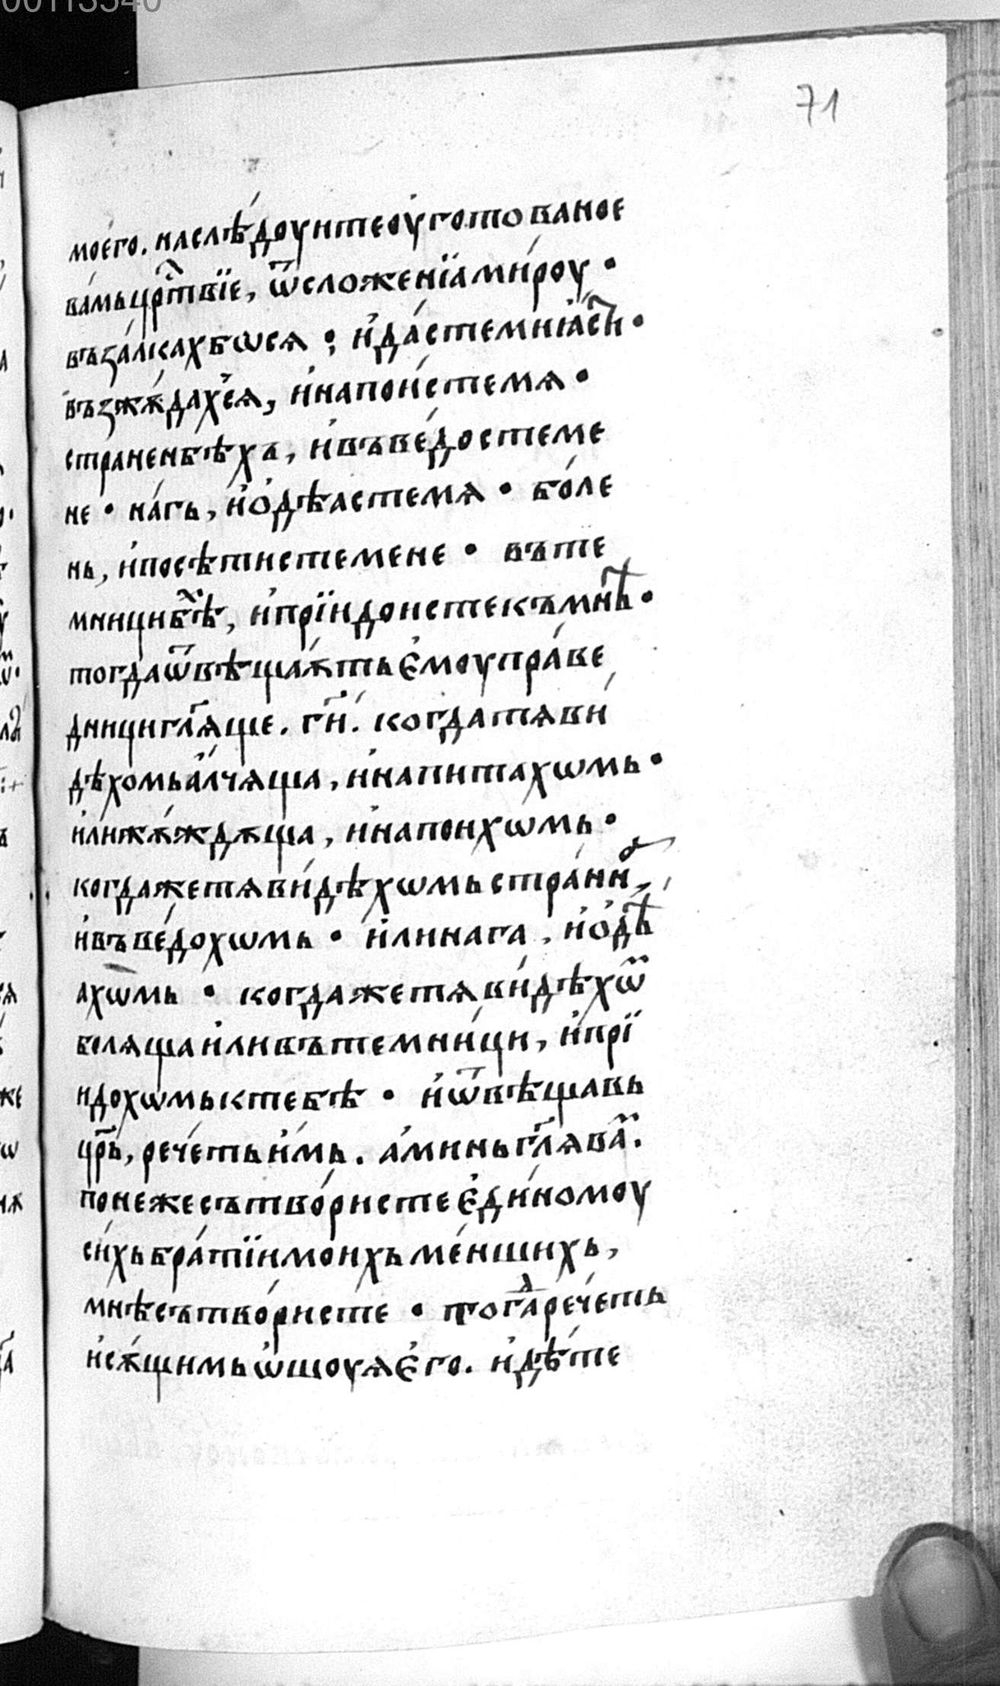 00113340
71
моего. наслѣдоуитеоуготованое
вамьцр҃твїе, ѿсложенїамироу •
възалкахбѡся • и҆дастемиꙗ҆сти •
възжѫдахся, и҆напоистемѧ •
страненбѣхъ, и҆въведостеме
не • нагь, и҆ѻдѣастемѧ • боле
нь, и҆посѣтистемене • въте
мницибѣ, и҆прїидоистекъмнѣ •
тогдаѿвѣщаѫтье҆моуправе
днициглѧ҃ще. ги҃. когдатѧви
дѣхомьалчѧща, и҆напитахѡмь •
илижѫждѫща, и҆напоихѡмь •
когдажетѧвидѣхѡмьстранн
и҆въведохѡмь • и҆линага, и҆ѻдѣ
ахѡмь • когдажетѧвидѣхѡм
болѧщаиливътемници, и҆прї
идохѡмьктебѣ • и҆ѿвѣщавь
цр҃ь, речетьимь. аминьгл҃ѧвам.
понежесътвористее҆диномоу
сихьбратїимоихьменшихь,
мнѣсътвористе • тогдаречеть
исѫщимьѡ҆шоуѧе҆го. и҆дѣте